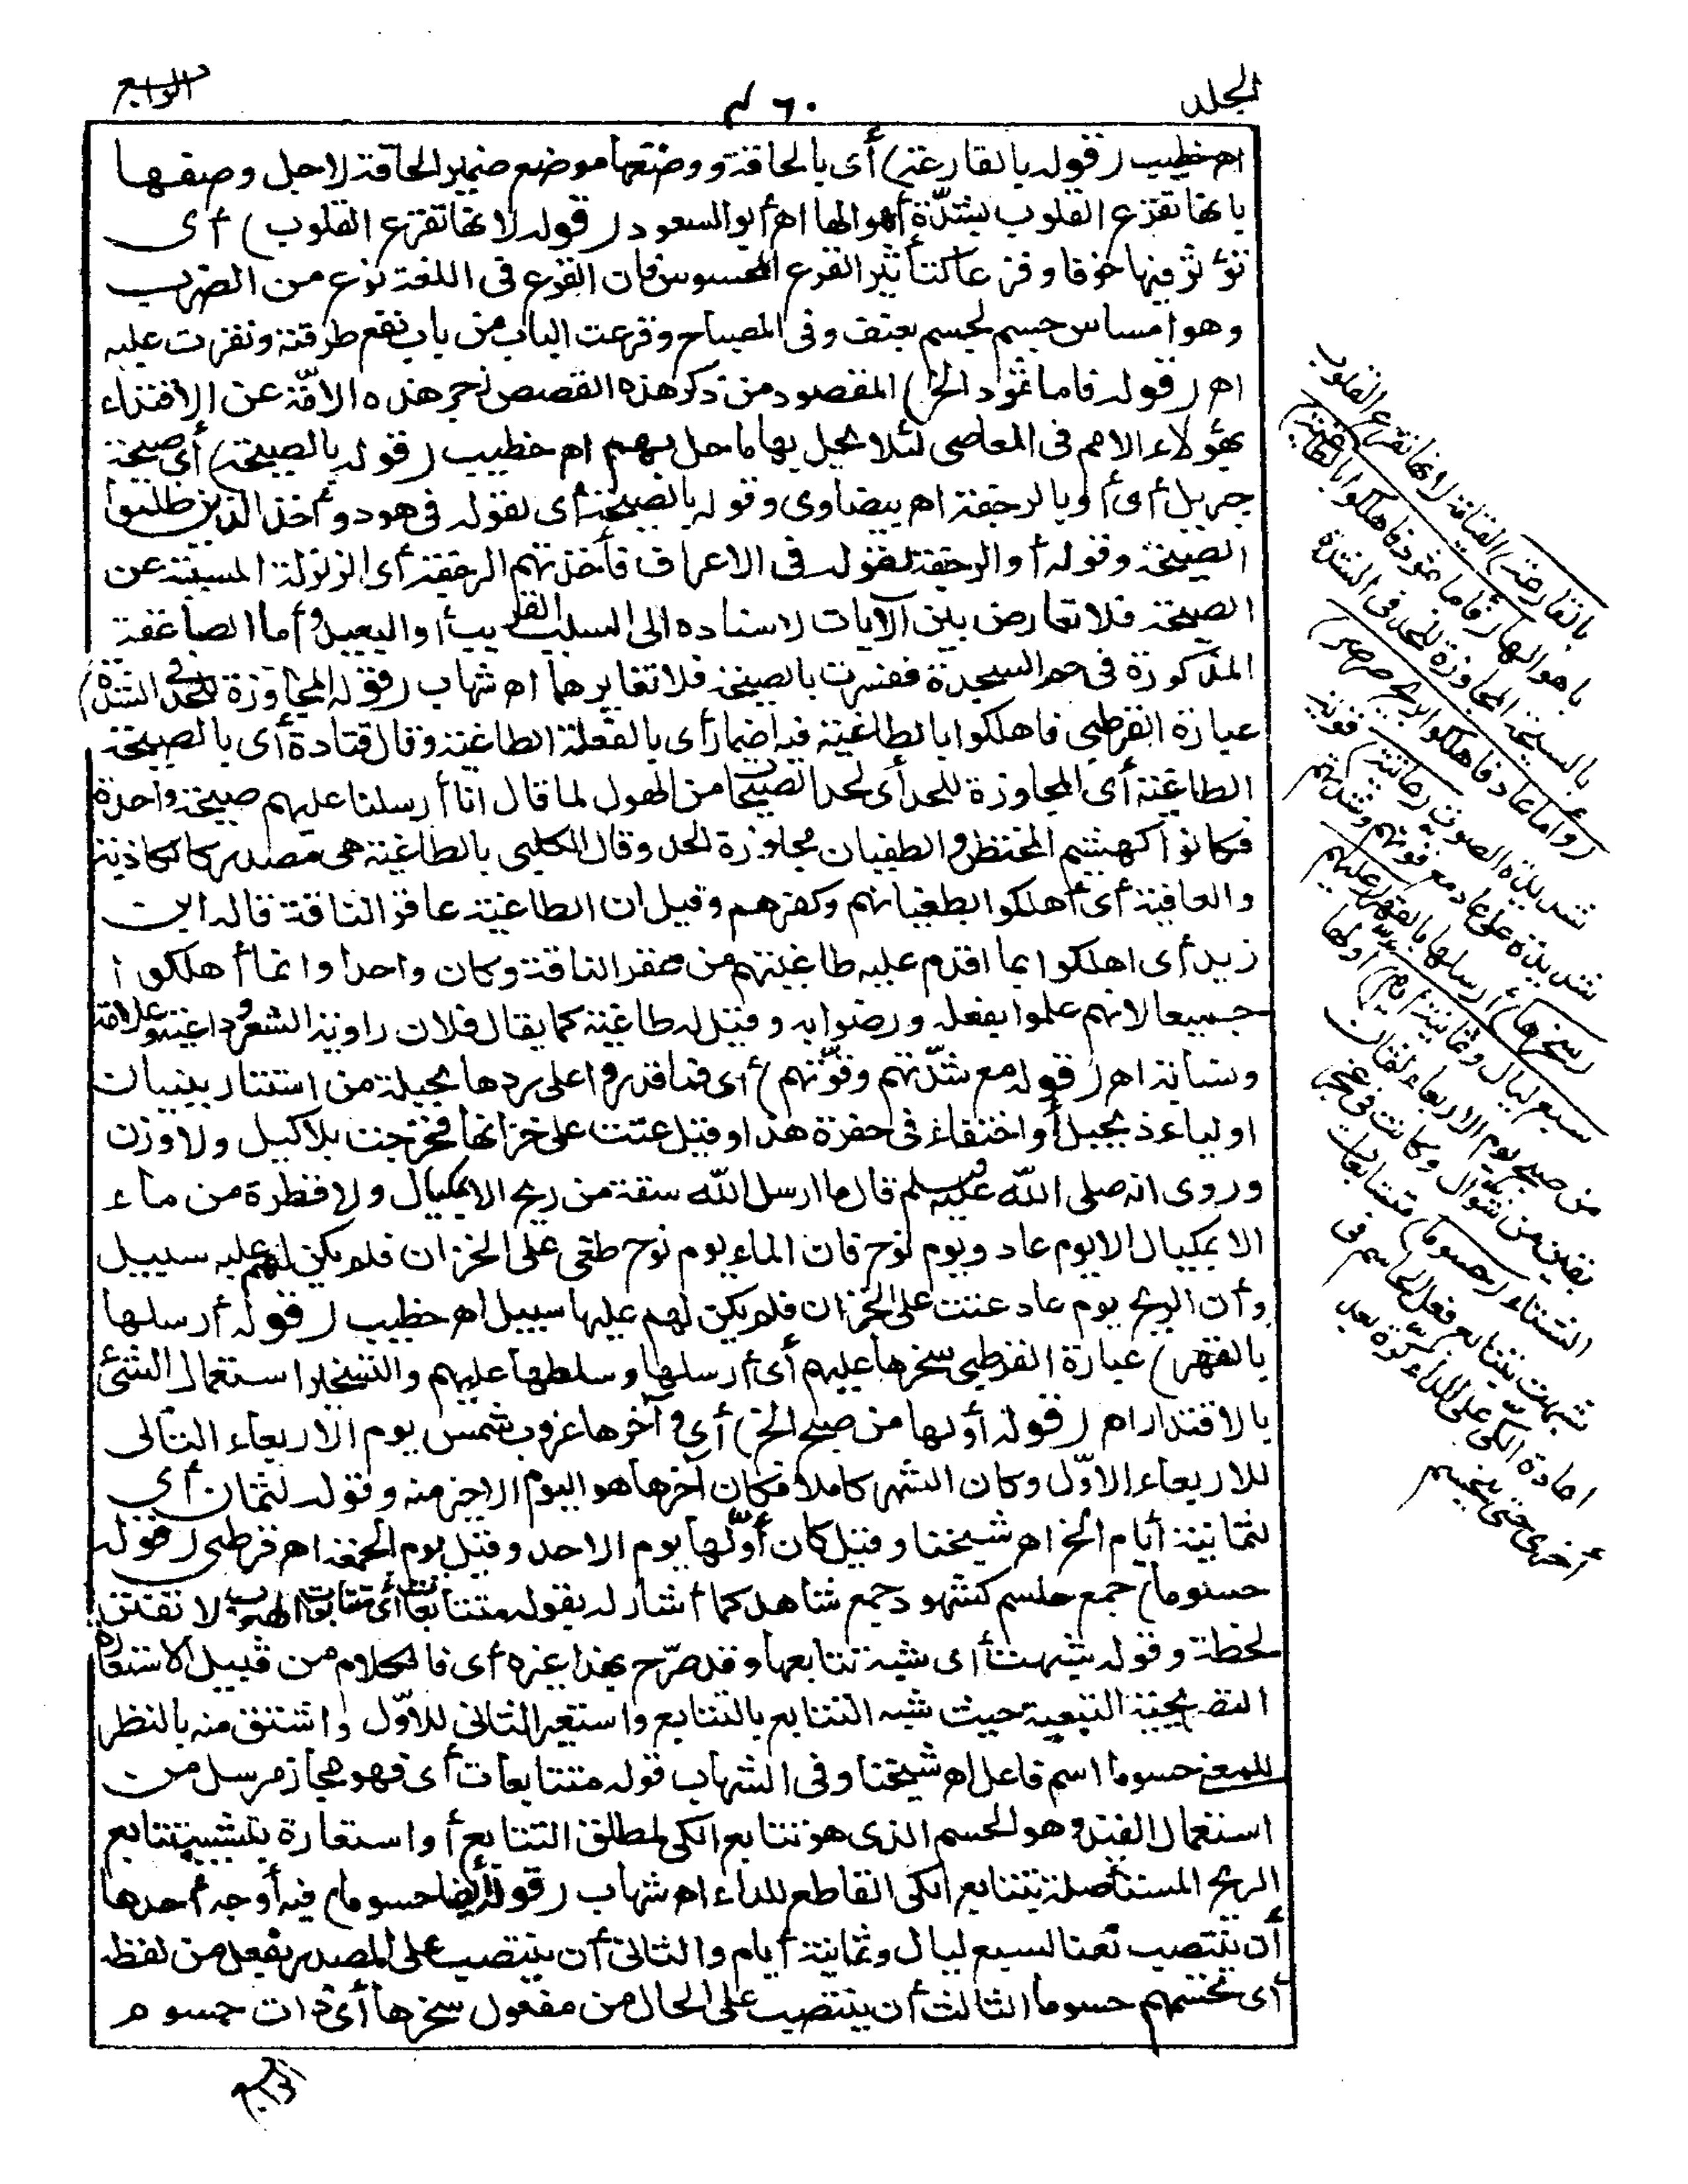 الجلد
٤٦٠
الرابع
اه خطيب (قوله بالقارعة) أى بالحاقة ووضعها موضع ضمير الحاقة لاجل وصفها
بانها تقرع القلوب بشدّة أهوالها اه أبو السعود (قوله لانها تقرع القلوب) أى
تؤثر فيها خوفا وفزعا كتأثير القرع المحسوس فان القرع فى اللغة نوع من الضرب
وهو امساس جسم لجسم بعنف وفى المصباح وقرعت الباب من باب نفع طرقته ونقرت عليه
اه (قوله فاما ثمود الخ) المقصود من ذكر هذه القصص زجر هذه الامّة عن الاقتداء
بهؤلاء الامم فى المعاصى لئلا يحل بها ما حل بهم اه خطيب (قوله بالصيحة) أى صيحة
جبريل أى أو بالرجفة اه بيضاوى وقوله بالصيحة أى لقوله فى هود وأخذ الذين ظلموا
الصيحة وقوله أو الرجفة لقوله فى الاعراف فأخذتهم الرجفة أى الزلزلة المسببة عن
الصيحة فلا تعارض بين الآيات لاسناده الى السبب القريب أو البعيد وأما الصاعقة
المذكورة فى حم السجدة ففسرت بالصيحة فلا تغايرهما اه شهاب (قوله المجاوزة للحد فى الشدة)
عبارة القرطبى فاهلكوا بالطاغية فيه اضمار أى بالفعلة الطاغية وقال قتادة أى بالصيحة
الطاغية أى المجاوزة للحد أى لحد الصيحات من الهول لما قال انا أرسلنا عليهم صيحة واحدة
فكانوا كهشيم المحتظر والطغيان مجاوزة الحد وقال الكلبى بالطاغية هى مصدر كالكاذبة
والعاقبة أى أهلكوا بطغيانهم وكفرهم وقيل ان الطاغية عاقر الناقة قاله ابن
زيد أى اهلكوا بما اقدم عليه طاغيتهم من عقر الناقة وكان واحدا وانما أهلكوا
جميعا لانهم علموا بفعله ورضوا به وقيل له طاغية كما يقال فلان راوية الشعر وداعية وعلامة
ونسابة اه (قوله مع شدّتهم وقوّتهم) أى فما قدروا على ردها بحيلة من استتار ببنيان
او لياءذ بجبل أو اختفاء فى حفرة هذا وقيل عتت على خزانها فخرجت بلا كيل ولا وزن
وروى انه صلى الله عليه وسلم قال ما ارسل الله سفة من ريح الا بمكيال ولا قطرة من ماء
الا بمكيال الا يوم عاد ويوم نوح فان الماء يوم نوح طغى على الخزان فلم يكن لهم عليه سبيل
وأن الريح يوم عاد عتت على الخزان فلم يكن لهم عليها سبيل اه خطيب (قوله أرسلها
بالقهر) عبارة القرطبى سخرها عليهم أى أرسلها وسلطها عليهم والتسخير استعمال الشئ
بالاقتدار اه (قوله أولها من صبح الخ) أى وآخرها غروب شمس يوم الاربعاء التالى
للاربعاء الاوّل وكان الشهر كاملا فكان آخرها هو اليوم الاخير منه وقوله لثمان أى
لثمانية أيام الخ اه شيخنا وقيل كان أوّلها يوم الاحد وقيل يوم الجمعة اه قرطبى (قوله
حسوما) جمع حاسم كشهود جمع شاهد كما أشار له بقوله متتابعات أى متتابعة الهبوب لا تفتر
لحظة وقوله شبهت أى شبه تتابعها وقد صرّح بهذا غيره أى فالكلام من قبيل الاستعارة
التصريحية التبعية حيث شبه التتابع بالتتابع واستعير الثانى للاوّل واشتق منه بالنظر
للمعنى حسوما اسم فاعل اه شيخنا وفى الشهاب قوله متتابعات أى فهو مجاز مرسل من
استعمال المقيد وهو الحسم الذى هو تتابع الكى لمطلق التتابع أو استعارة بتشبيه تتابع
الريح المستأصلة بتتابع الكى القاطع للداء اه شهاب (قوله أيضا حسوما) فيه أوجه أحدها
أن ينتصب نعتا لسبع ليال وثمانية أيام والثانى أن ينتصب على المصدر بفعل من لفظه
أى تحسمهم حسوما الثالث أن ينتصب على الحال من مفعول سخرها أى ذات حسوم
بالقارعة) القيامة لانها تقرع القلوب
باهوالها (فأما ثمود فاهلكوا بالطاغية)
بالصيحة المجاوزة للحد فى الشدة
(وأما عاد فاهلكوا بريح صرصر)
شديدة الصوت (عاتية) قوية
شديدة على عاد مع قوتهم وشدتهم
(سخرها) أرسلها بالقهر (عليهم
سبع ليال وثمانية أيام) أولها
من صبح يوم الاربعاء لثمان
بقين من شوال وكانت فى عجز
الشتاء (حسوما) متتابعات
شبهت بتتابع فعل الحاسم فى
اعادة الكى على الداء كرّة بعد
أخرى حتى ينحسم